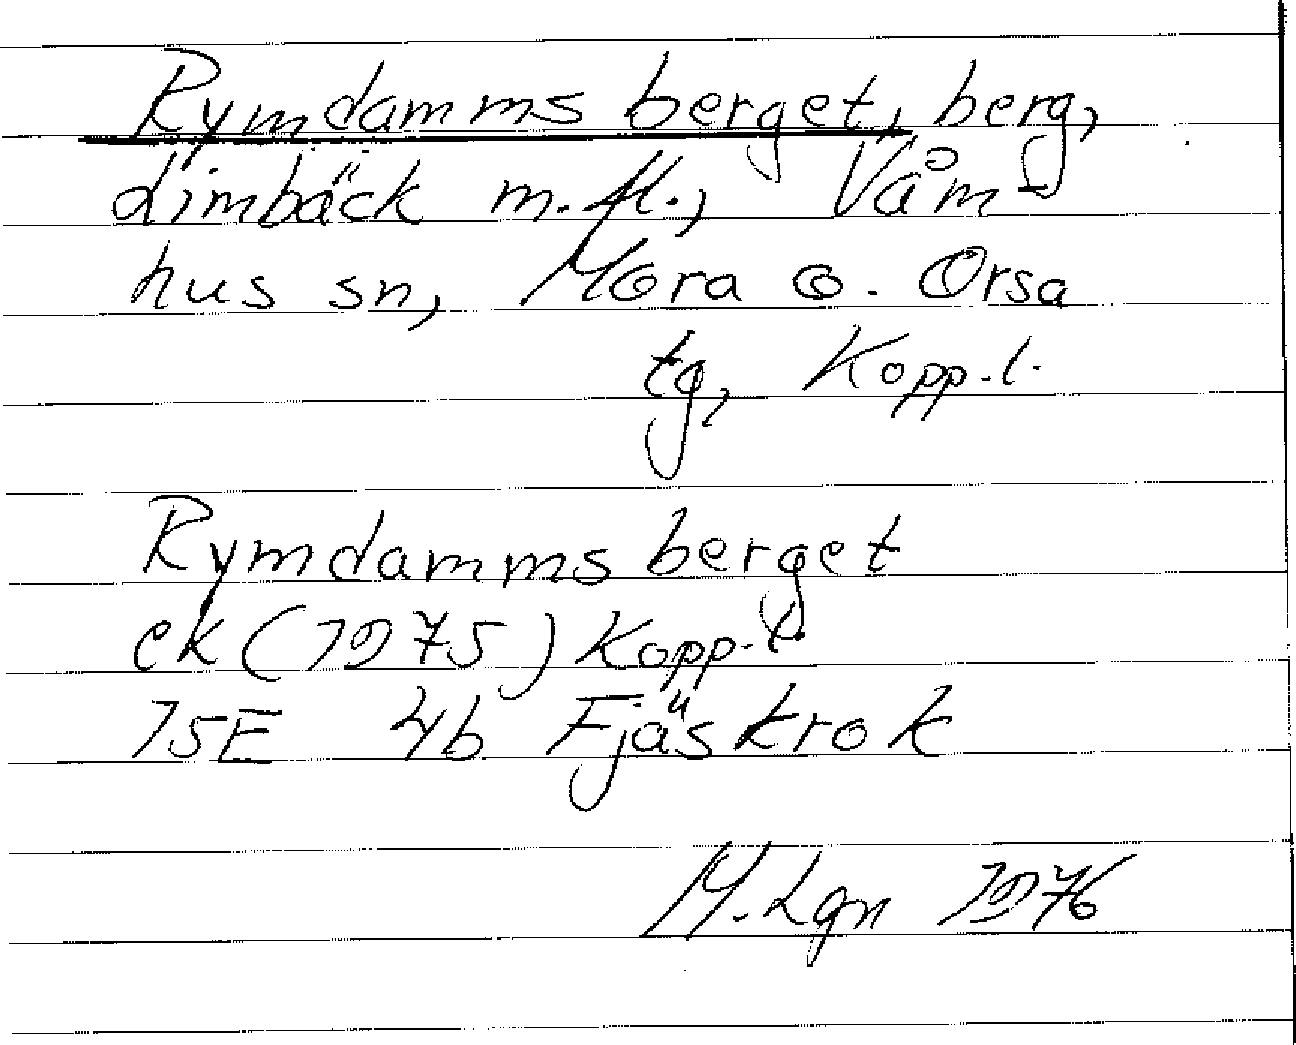 Rymdamms berget, berg,
Limbäck m.fl., Våm-
hus sn, Mora o. Orsa
tg, Kopp.l.
Rymdamms berget
ek (1975) Kopp.l.
15E 4b Fjäskrok
M. Lgn 1976